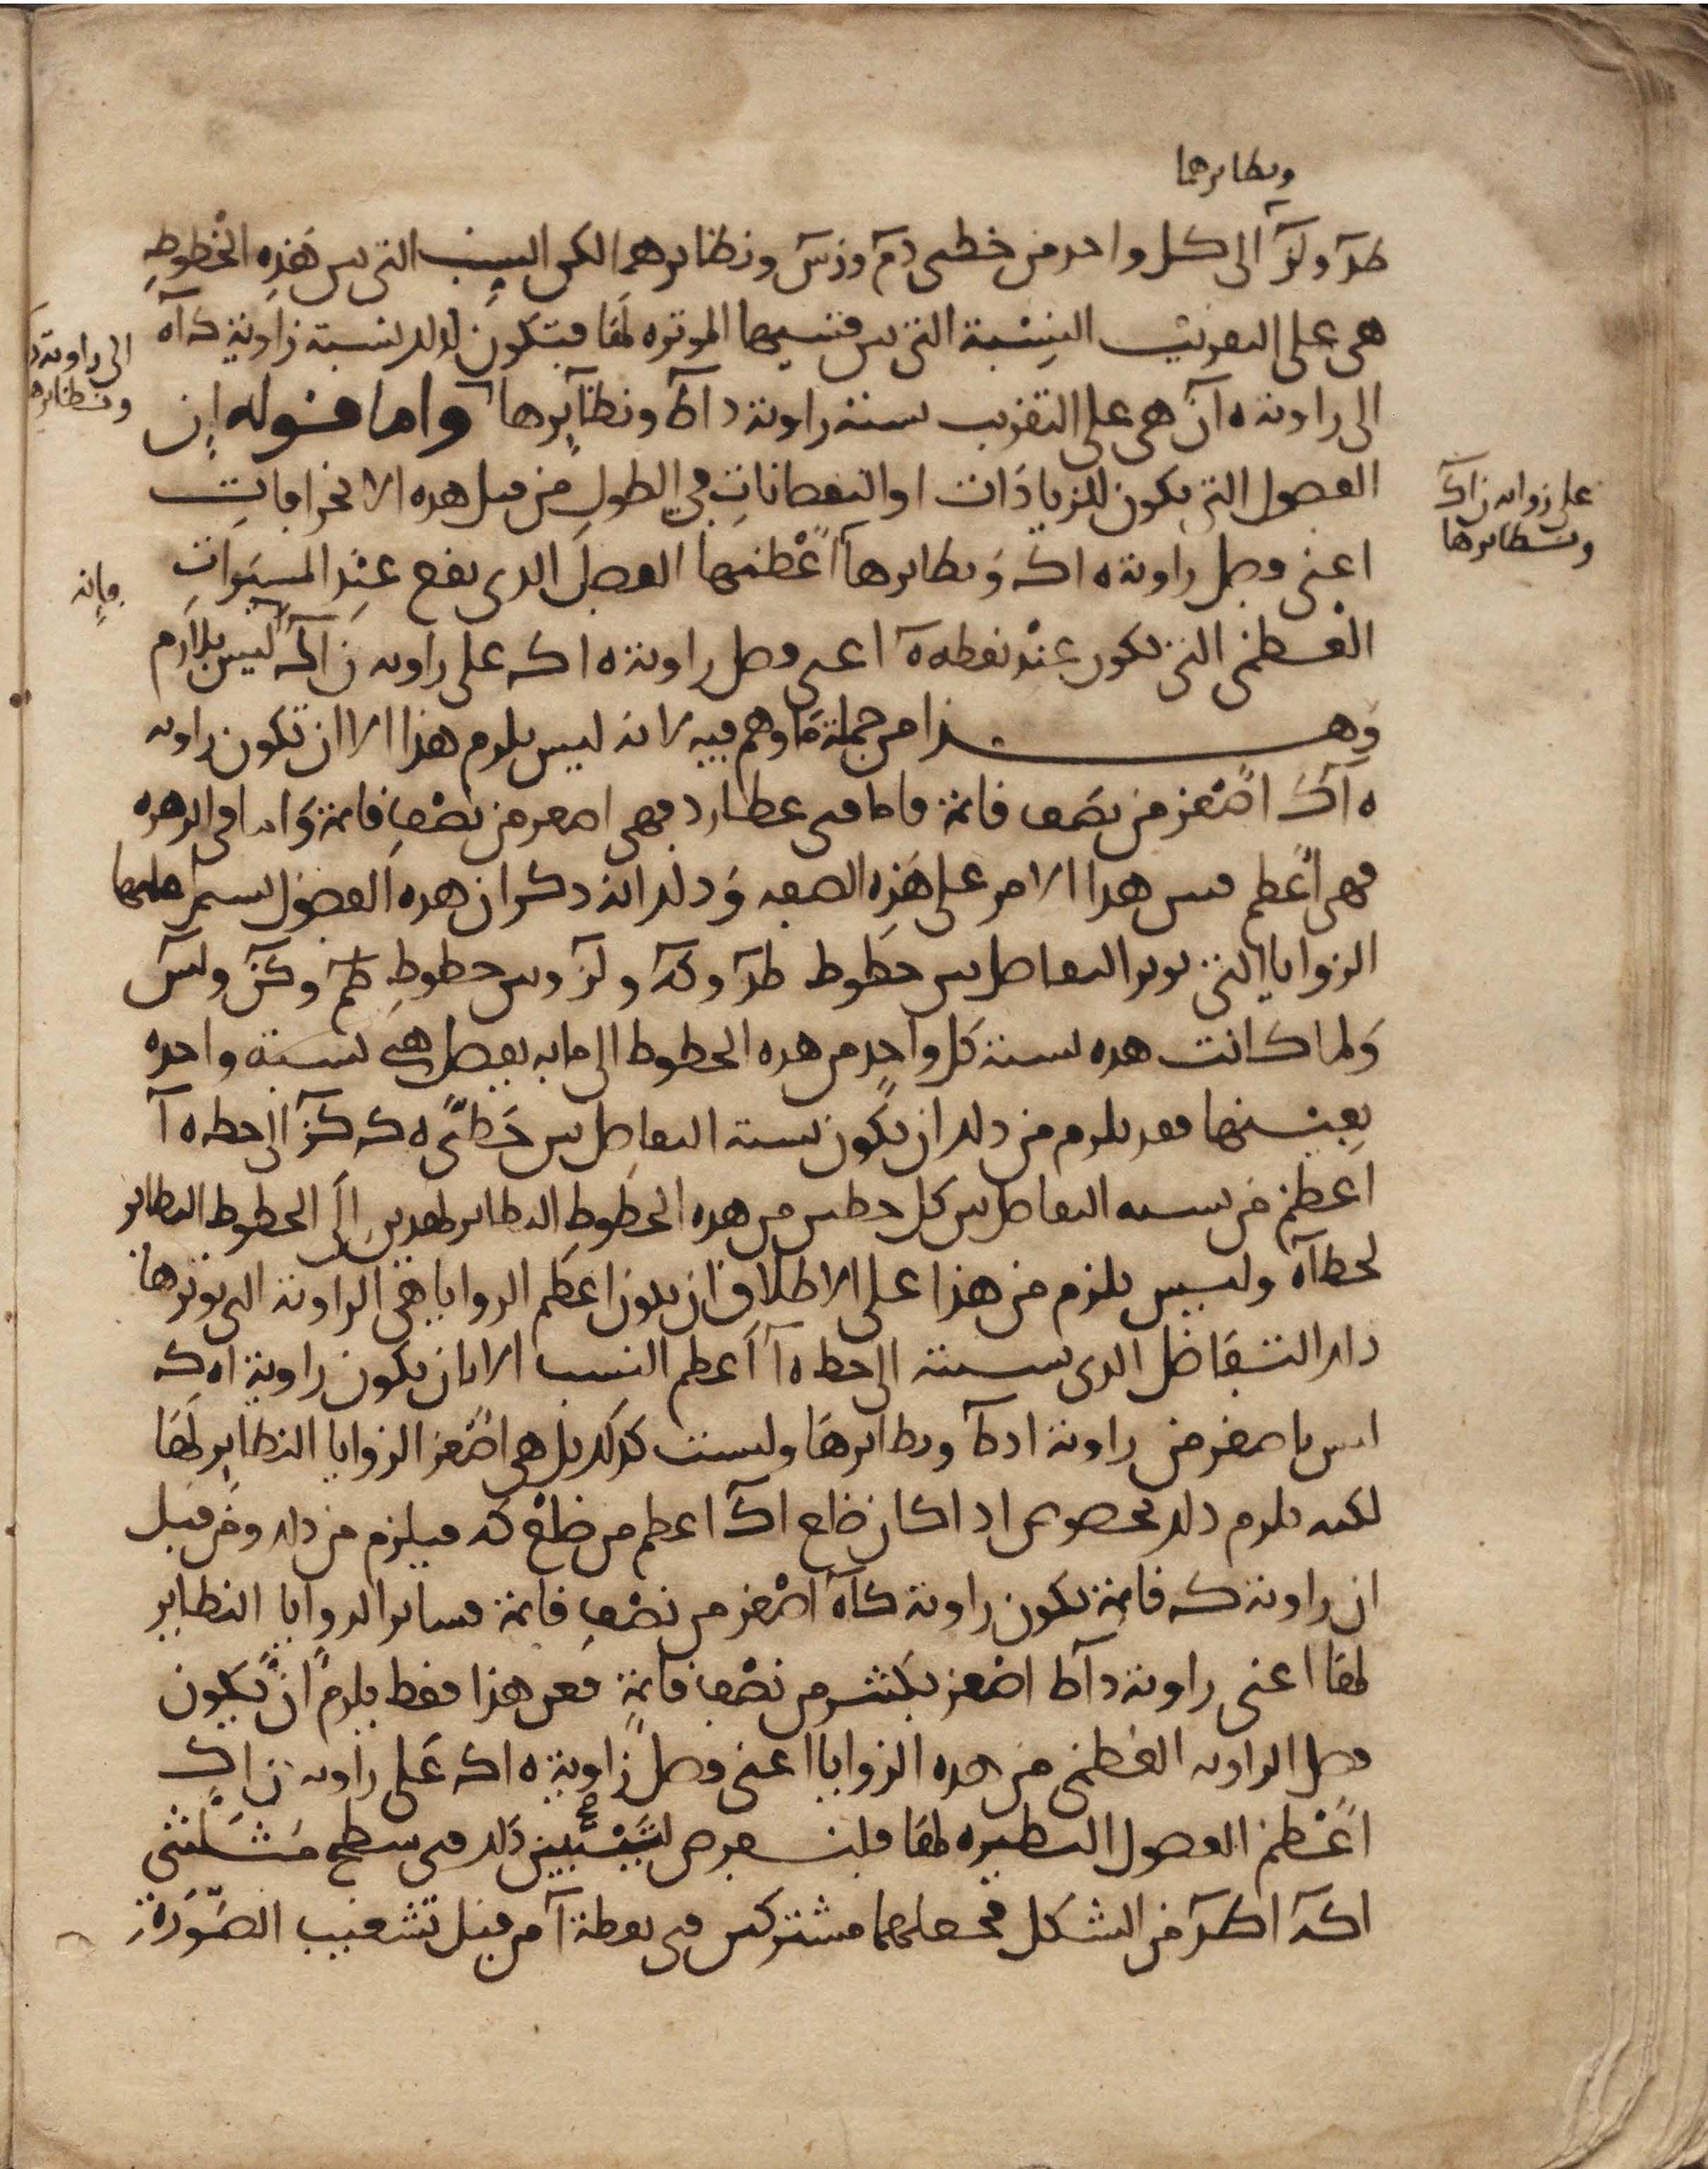 ونطايرهما
طد ولز الى كل واحد من خطى دم وزس ونظايرهما لكن النسب التى بين هذه الخطوط
هى على التقريب النسبة التى بين قسيها الموتره لها فتكون لذلك نسبة زاوية ك ا ه
الى زاوية د
ونظايرها
الى زاوية ه ا ز هى على التقريب نسبة زاوية د ا ط ونظايرها واما قوله ان
الفصول التى يكون للزيادات او النقصانات فى الطول من قبل هذه الانحرافات
على زوايه زاك
ونظايرها
اعنى فصل زاوية ه اك ونظايرها اعظمها الفصل الذى يقع عند المسيرات
فانه
العظمى التى تكون عند نقطه ه اعنى فصل زاوية ه اك على زاويه ز اك ليس بلازم
وهذا من جملة ما وهم فيه لانه ليس يلزم هذا الا ان تكون زاويه
ه اك اصغر من نصف قائمة فاما فى عطارد فهى اصغر من نصف قائمة واما فى الزهره
فهى اعظم فليس هذا الامر على هذه الصفه وذلك انه ذكر ان هذه الفصول
الزوايا التى توتر التفاصل بين خطوط طد وكه ولز وبين خطوط طم وكن ولس
ولما كانت هذه نسبة كل واحد من هذه الخطوط الى ما به يفصل هى نسبة واحده
بعينها فقد يلزم من ذلك ان يكون نسبة التفاضل بين خطى ه ك كن الى خط ه ا
اعظم من نسبه التفاضل بين كل خطين من هذه الخطوط النظاير لهذين الى الخطوط النظاير
لخط اه وليس يلزم من هذا على الاطلاق ان يكون اعظم الزوايا هى الزاوية التى يوترها
ذلك التفاضل الذى نسبته الى خط ه ا اعظم النسب الا بان يكون زاوية اه ك
ليس باصغر من زاوية ادط ونظايرها وليست كذلك بل هى اصغر الزوايا النظاير لها
لكنه يلزم ذلك بخصوص اذا كان ضلع اك اعظم من ضلع كه فيلزم من ذلك ومن قبل
ان زاوية ك قائمة تكون زاوية ك اه اصغر من نصف قائمة فساير الزوايا النظاير
لها اعنى زاوية د اط اصغر بكثير من نصف قائمة فمن هذا فقط يلزم ان يكون
فصل الزاويه العظمى من هذه الزوايا اعنى فصل زاوية ه اك على زاويه ز اك
اعظم الفصول النظيره لها فلنفرض لتبيين ذلك فى سطح مثلثى
اكه اطد من الشكل فجعلهما مشتركين فى نقطة ا من قبل تشعيب الصورة